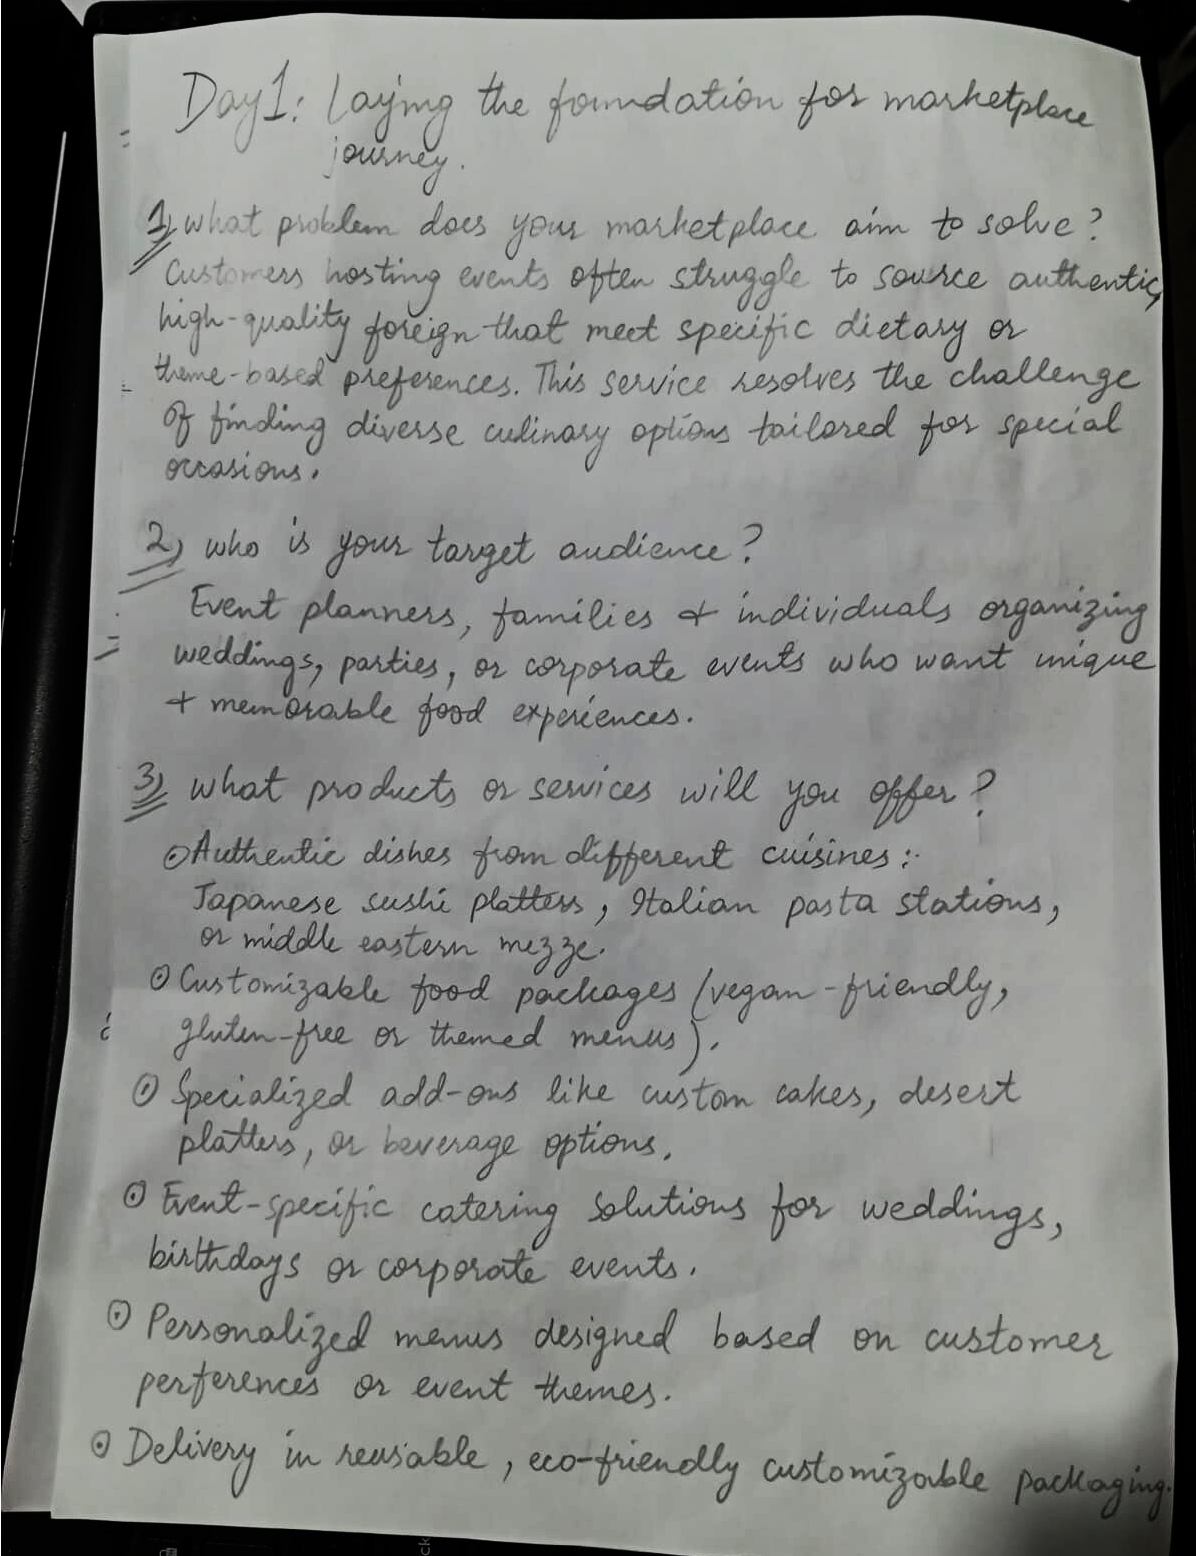 Day 1: Laying the foundation for marketplace
journey.
1) what problem does your marketplace aim to solve?
Customers hosting events often struggle to source authentic,
high-quality foreign that meet specific dietary or
theme-based preferences. This service resolves the challenge
Of finding diverse culinary options tailored for special
occasions.
2) who is your target audience?
Event planners, families + individuals organizing
weddings, parties, or corporate events who want unique
+ memorable food experiences.
3) what products or services will you offer?
⊙ Authentic dishes from different cuisines:
Japanese sushi platters, Italian pasta stations,
or middle eastern mezze.
⊙ Customizable food packages (vegan-friendly,
gluten-free or themed menus).
⊙ Specialized add-ons like custom cakes, desert
platters, or beverage options.
⊙ Event-specific catering solutions for weddings,
birthdays or corporate events.
⊙ Personalized menus designed based on customer
perferences or event themes.
⊙ Delivery in reusable, eco-friendly customizable packaging.